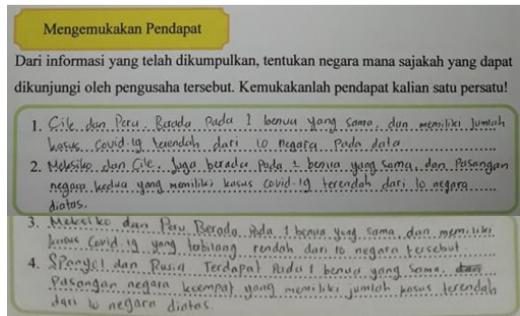 Mengemukakan Pendapat
Dari informasi yang telah dikumpulkan, tentukan negara mana sajakah yang dapat
dikunjungi oleh pengusaha tersebut. Kemukakanlah pendapat kalian satu persatu!
1. Cile dan Peru. Berada Pada 1 benua yang Sama, dan memiliki Jumlah
kasus Covid-19 terendah dari 10 negara Pada data
2. Meksiko dan Cile, Juga berada Pada 1 benua yang sama, dan Pasangan
negara kedua yang memiliki kasus covid-19 terendah dari 10 negara
diatas.
3. Meksiko dan Peru Berada Pada 1 benua yang sama, dan memiliki
kasus Covid.19 yang terbilang rendah dari 10 negara tersebut
4. SPanyol dan Rusia Terdapat Pada 1 benua yang Sama,
Pasangan negara keempat yang memiliki jumlah kasus terendah
dari 10 negara diatas.